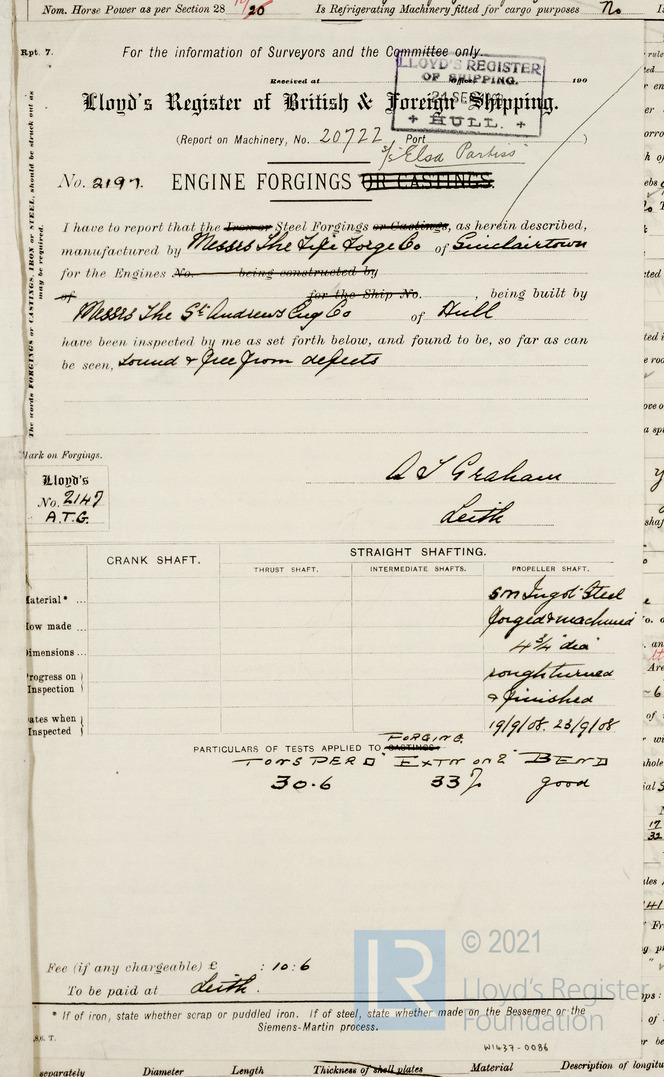 Nom. Horse Power as per Section 28 20 Is Refrigerating Machinery fitted for cargo purposes No
Rpt. 7.
For the information of Surveyors and the Committee only.
Received at Office 190
LLOYD'S REGISTER
OF SHIPPING.
24 SEP
HULL.
Lloyd's Register of British & Foreign Shipping.
(Report on Machinery, No. 20722 Port )
S/S Elsa Partiss
No. 2197. ENGINE FORGINGS OR CASTINGS.
The words FORGINGS or CASTINGS, IRON or STEEL, should be struck out as may be required.
I have to report that the Iron or Steel Forgings or Castings, as herein described,
manufactured by Messrs The Fife Forge Co of Sinclairtown
for the Engines No. being constructed by
of for the Ship No. , being built by
Messrs The St Andrews Eng Co of Hull
have been inspected by me as set forth below, and found to be, so far as can
be seen, sound & free from defects
Mark on Forgings.
Lloyd's
No. 2147
A.T.G.
A T Graham
Leith
CRANK SHAFT. STRAIGHT SHAFTING.
THRUST SHAFT. INTERMEDIATE SHAFTS. PROPELLER SHAFT.
Material* ... S M Ingot Steel
How made ... forged & machined
Dimensions ... 4 3/4" dia
Progress on Inspection rough turned
& finished
Dates when Inspected 19/9/08. 23/9/08
PARTICULARS OF TESTS APPLIED TO CASTINGS. FORGING.
TONS PER □" EXTN ON 2" BEND
30.6 33% good
Fee (if any chargeable) £ : 10 : 6
To be paid at Leith.
* If of iron, state whether scrap or puddled iron. If of steel, state whether made on the Bessemer or the
Siemens-Martin process.
W1437-0086
© 2021
LR
Lloyd's Register
Foundation
separately Diameter Length Thickness of shell plates Material Description of